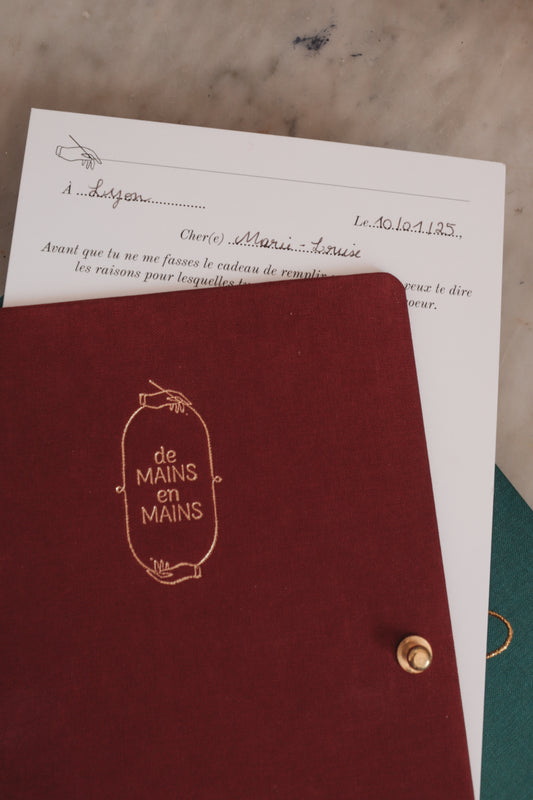 À ...Lyon...
Le...10/01/25...
Cher(e) ...Marie - Louise
Avant que tu ne me fasses le cadeau de remplir veux te dire
les raisons pour lesquelles coeur.
de
MAINS
en
MAINS